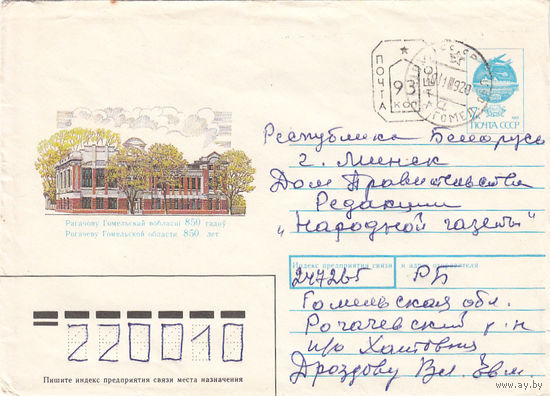 ПОЧТА
93
коп
ПОЧТА СССР
Республика Беларусь
г. Минск
Дом Правительства
Редакции
„Народной газеты"
Рагачову Гомельскай вобласці 850 гадоў
Рогачеву Гомельской области 850 лет
Индекс предприятия связи и адрес отправителя
247265 РБ
Гомельская обл.
Рогачевский р-н
п/о Хатовня
Дроздову Вл. Евм.
220010
Пишите индекс предприятия связи места назначения
www.ay.by